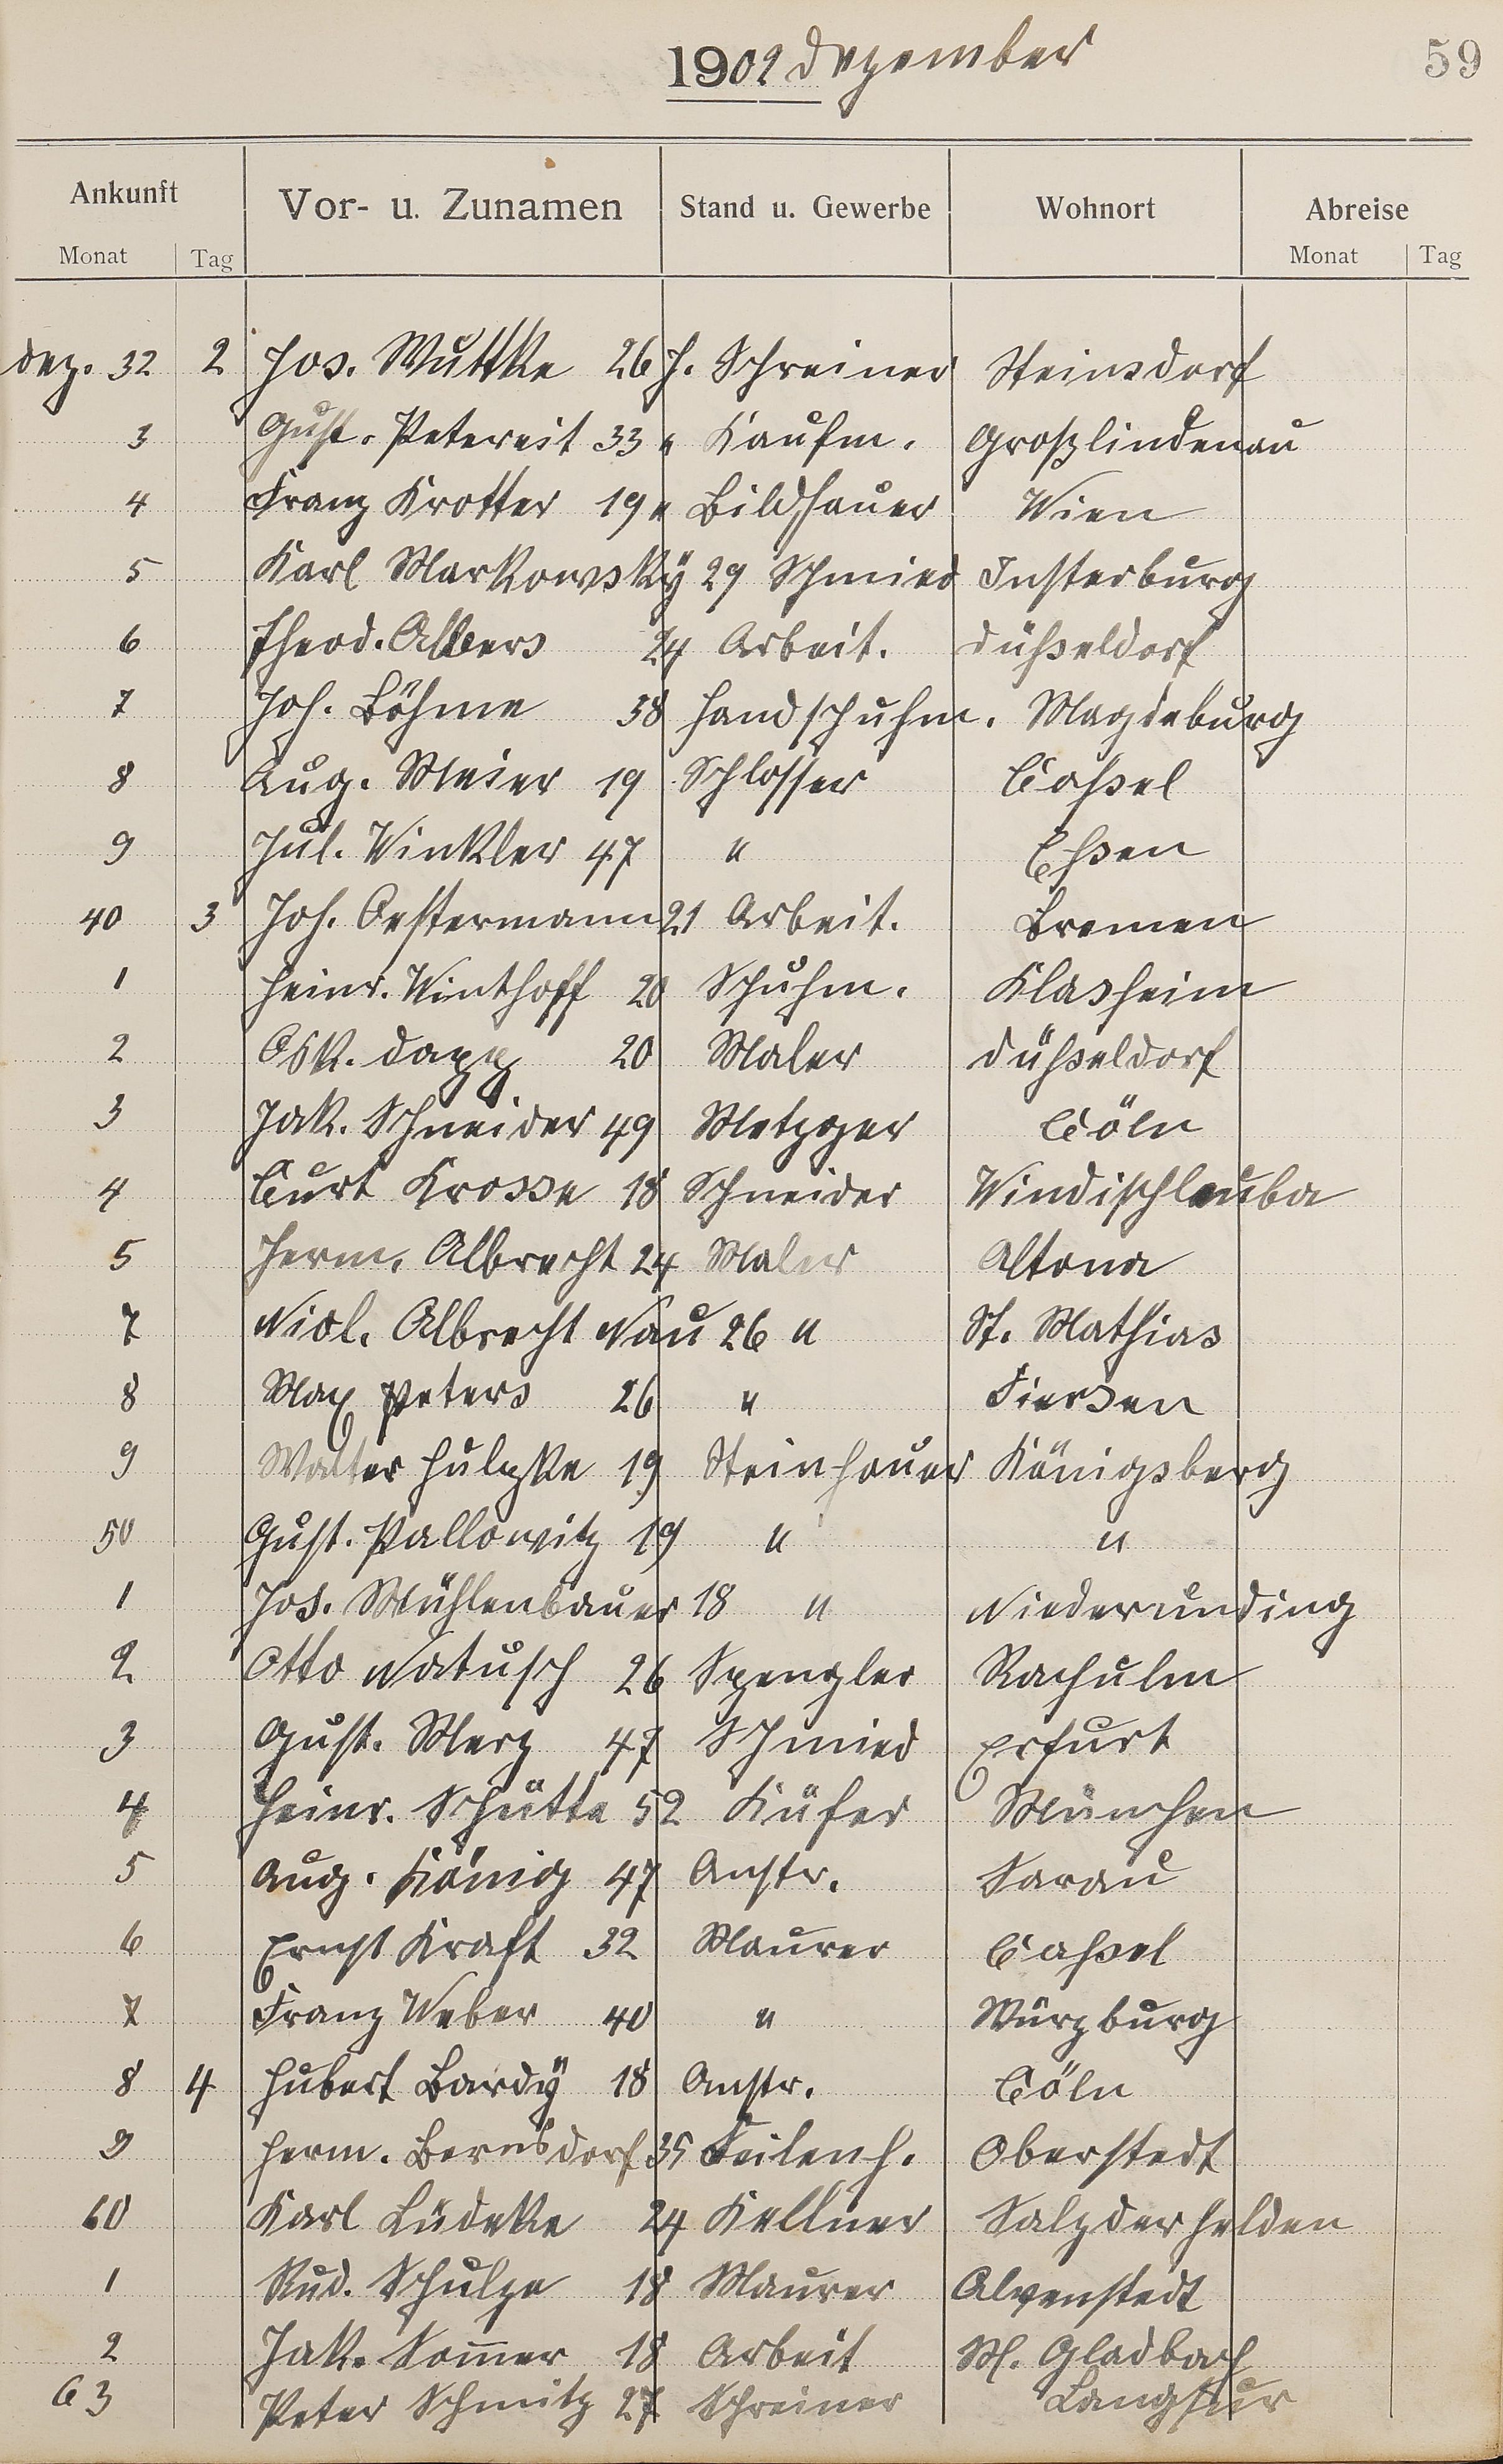 1902 Dezember
59
Ankunft Vor- u. Zunamen Stand u. Gewerbe Wohnort Abreise
Monat Tag Monat Tag
Dez. 32 2 Jos. Wuttke 26 J. Schreiner Steinsdorf
3 Gust. Petereit 33 " Kaufm. Großlindenau
4 Franz Krotter 19 " Bildhauer Wien
5 Karl Markowsky 29 Schmied Insterburg
6 Theod. Albers 24 Arbeit. Düßseldorf
7 Joh. Böhme 38 Handschuhm. Magdeburg
8 Aug. Meier 19 Schlosser Caßsel
9 Jul. Winkler 47 " Eßsen
40 3 Joh. Oestermann 21 Arbeit. Bremen
1 Heinr. Winthoff 20 Schuhm. Klasheim
2 Osk. Dapp 20 Maler Düßseldorf
3 Jak. Schneider 49 Metzger Cöln
4 Curt Krosse 18 Schneider Windischleuba
5 Herm. Albrecht 24 Maler Altona
7 Albrecht Nau 26 " St. Mathias
8 Max Peters 26 " Viersen
9 Walter Hulzke 19 Steinhauer Königsberg
50 Gust. Pallowitz 19 " "
1 Jos. Mühlenbauer 18 " Niederunding
2 Otto Natusch 26 Spengler
3 Gust. Merz 47 Schmied Erfurt
4 Heinr. Schütte 52 Küfer München
5 Aug. König 47 Anstr. Sarau
6 Ernst Kraft 32 Maurer Caßsel
7 Franz Weber 40 " Würzburg
8 4 Hubert Bardy 18 Anstr. Cöln
9 Herm. Bernsdorf 35 Feilenh. Oberstedt
60 Karl Lüdeke 24 Kellner Salzderhelden
1 Rud. Schulze 18 Maurer Alvenstedt
2 Jak. Som̅er 18 Arbeit M. Gladbach
63 Peter Schmitz 27 Schreiner Langsur